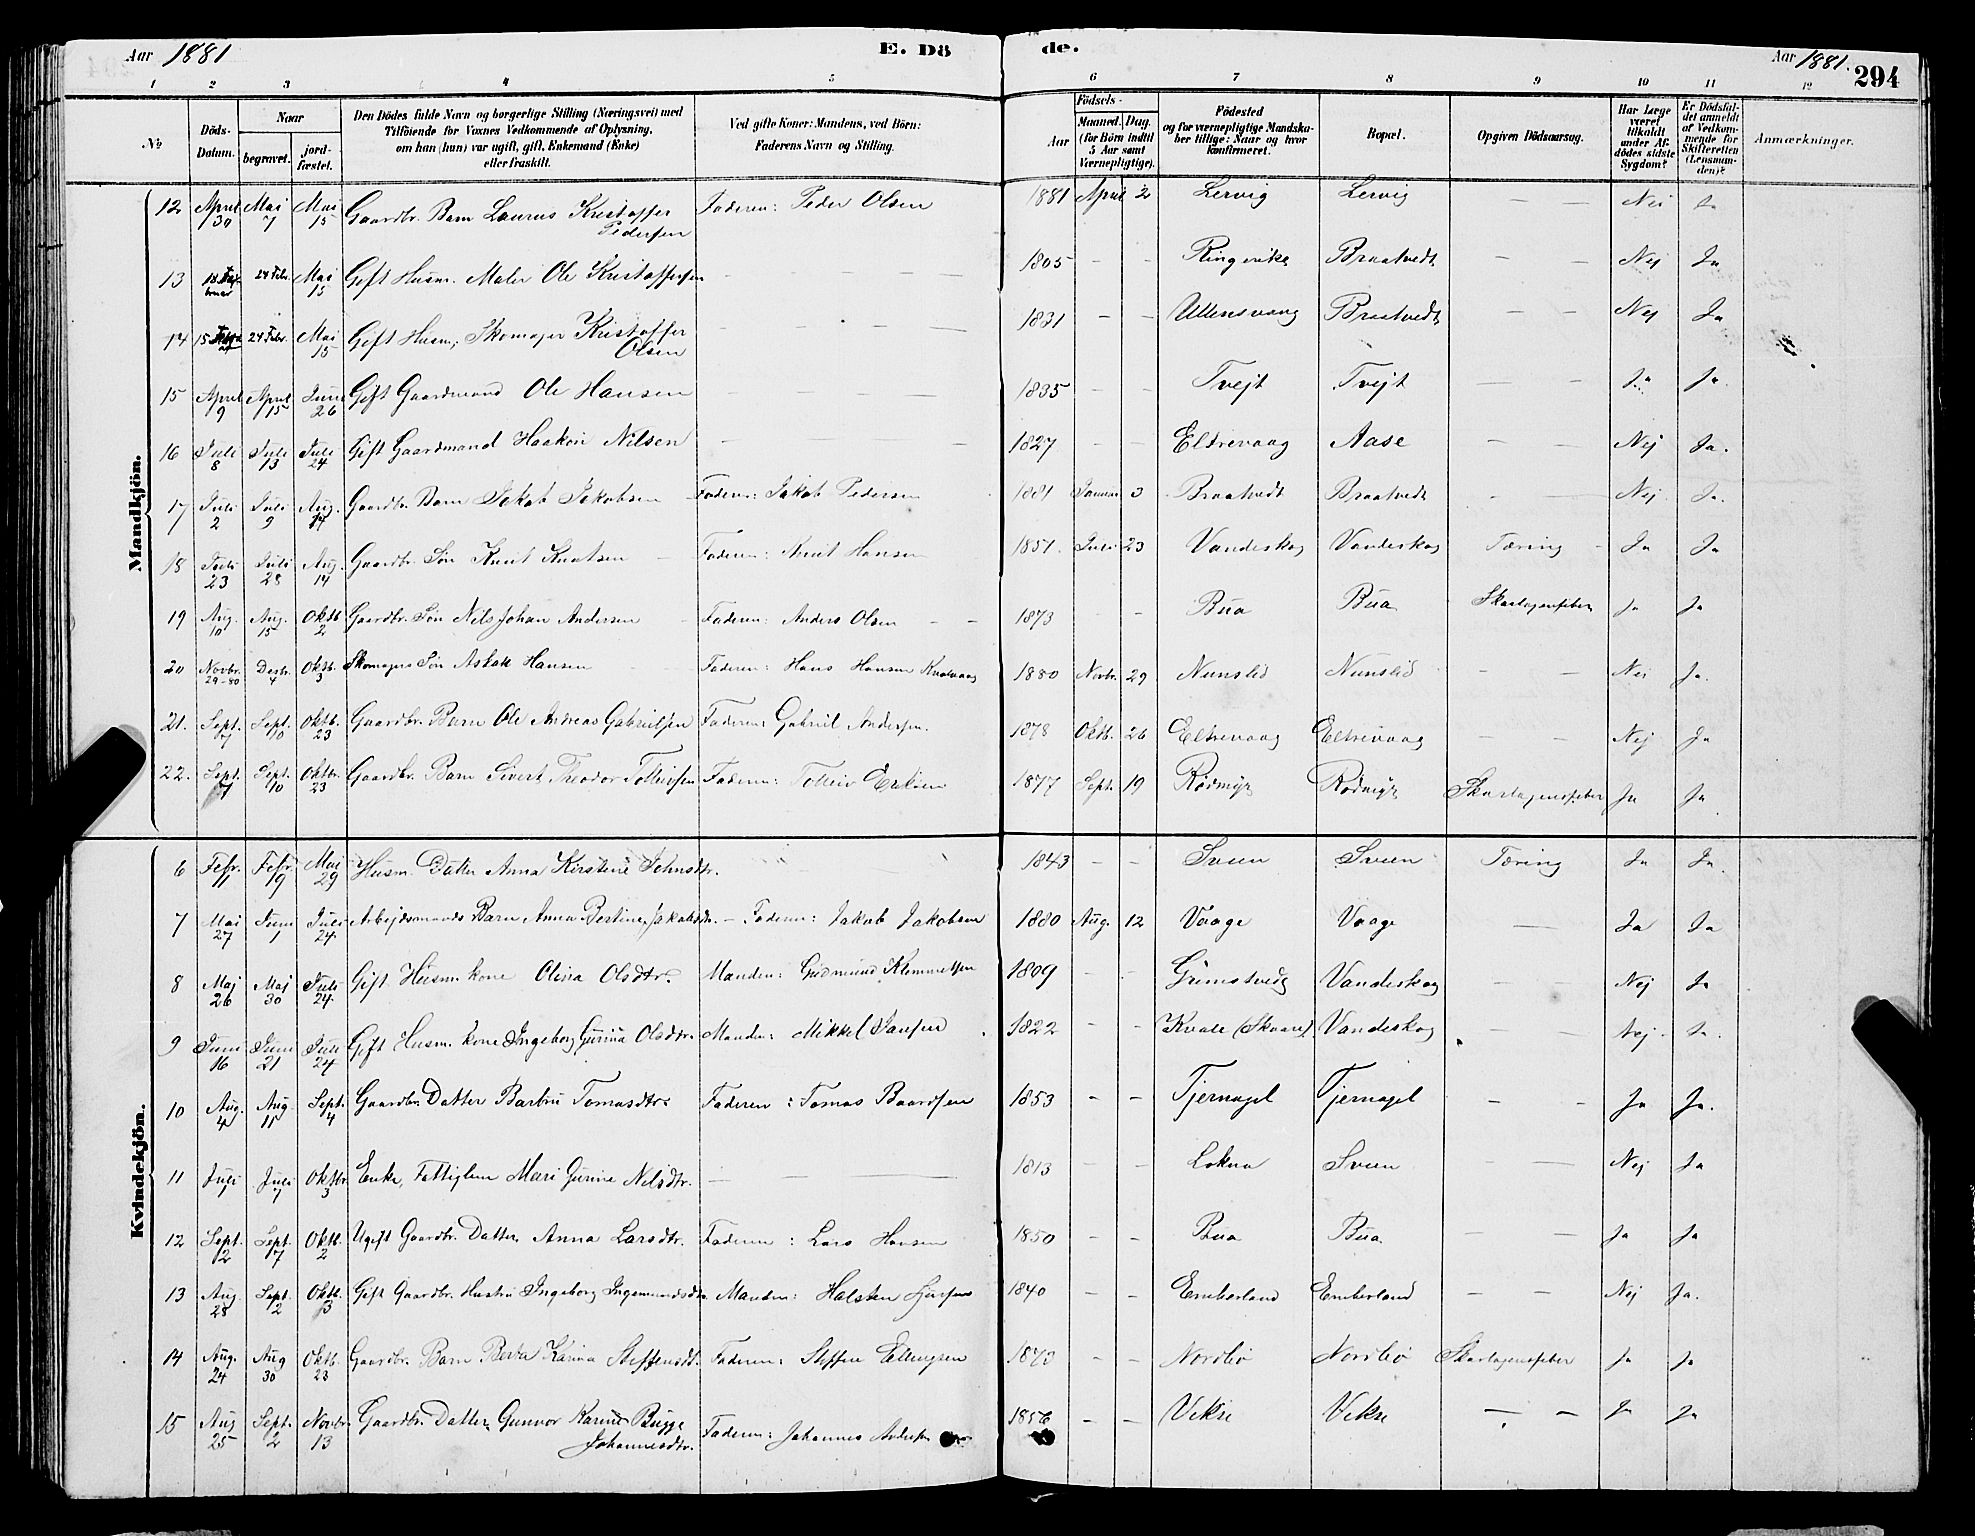 Aar 1881 E. Döde. Aar 1881. 294
1 2 3 4 5 6 7 8 9 10 11 12
No Döds-Datum. Naar begravet. jordfæstet. Den Dödes fulde Navn og borgerlige Stilling (Næringsvei) med Tilföiende for Voxnes Vedkommende af Oplysning, om han (hun) var ugift, gift, Enkemand (Enke) eller fraskilt. Ved gifte Koner: Mandens, ved Börn: Faderens Navn og Stilling. Födsels- Aar Maaned. Dag. (för Börn indtil 5 Aar samt Værnepligtige). Födested og for værnepligtige Mandskaber tillige: Naar og hvor konfirmeret. Bopæl. Opgiven Dödsaarsag. Har Læge været tilkaldt under Afdödes sidste Sygdom? Er Dödsfaldet anmeldt af Vedkommende for Skifteretten (Lensmanden)? Anmærkninger.
Mandkjön.
12 April 30 Mai 7 Mai 15 Gaardbr. Barn Laurus Kristoffer Pedersen Faderen: Peder Olsen 1881 April 2 Lervig Lervig — — Nei Ja
13 18 Februar 24 Febr. Mai 15 Gift Husm. Maler Ole Kristoffersen — — — — 1805 - - Ringerike Braatvedt — — Nej Ja
14 15 24 Febr. Mai 15 Gift Husm, Skomager Kristoffer Olsen — — — — 1831 - - Ullensvang Braatvedt — — Nej Ja
15 April 9 April 15 Juni 26 Gift Gaardmand Ole Hansen — — — 1835 - - Tvejt Tvejt — — Ja Ja.
16 Juli 8 Juli 13 Juli 24 Gift Gaardmand Haakon Nilsen — — — 1827 - - Eltrevaag Aase — — Nej Ja.
17 Juli 2 Juli 9 Aug. 14 Gaardbr. Barn Jakob Jakobsen Faderen: Jakob Pedersen 1881 Januar 3 Braatvedt Braatvedt — — Nej Ja.
18 Juli 23 Juli 28 Aug. 14 Gaardbr. Søn Knut Knutsen Faderen: Knut Hansen 1851. Juli 23 Vandeskog Vandeskog Tæring Ja Ja
19 Aug. 10 Aug. 15 Oktb. 2 Gaardbr. Søn Nils Johan Andersen Faderen: Anders Olsen 1873 - - Bua Bua Skarlagensfeber Ja Ja
20 Novbr. 29-80 Desbr. 4 Oktb. 3 Skomagers Søn Hansen Faderen: Hans Hansen 1880 Novbr. 29 Nunslid Nunslid — — Nei Ja.
21. Sept. 7 Sept. 10 Oktb. 23 Gaardbr. Barn Ole Andreas Gabrielsen Faderen: Gabriel Andersen. 1878 Oktb. 26 Eltrevaag Eltrevaag — — Nej Ja
22. Sept. 7 Sept. 10 Oktbr. 23 Gaardbr. Barn Sivert Theodor Tolleivsen Faderen: Tolleiv Eriksen 1877 Sept. 19 Rødmyr Rødmyr Skarlagensfeber Ja Ja
Kvindekjön.
6 Febr. 11 Febr. 19 Maj 29 Husm. Datter Anna Kirstine Johnsdtr. 1843 - - Sveen Sveen Tæring Ja Ja.
7 Mai 27 Juni 1 Juli 24 Arbejdsmands Barn Anna Bertine Jakobsdtr. — Faderen: Jakob Jakobsen 1880 Aug. 12 Vaage Vaage — Ja Ja
8 Maj 26 Maj 30 Juli 24 Gift Husm. kone Olina Olsdtr. Manden: Gudmund Klemmetsen 1809 - - Grimstvedt Vandeskog — — Nej Ja
9 Juni 16 Juni 21 Juli 24 Gift Husm. kone Ingeborg Gurina Olsdtr. Manden: Mikkel Jansen 1822 - - Kvale (Skaare). Vandeskog — — Nej. Ja.
10 Aug. 4 Aug 11 Sept. 4 Gaardbr. Datter Barbru Tomasdtr. Faderen: Tomas Baardsen 1853 - - Tjernagel Tjernagel - - Ja Ja.
11 Juli 1 Juli 7 Oktbr. 3 Enke, Fattiglem Mari Gurine Nilsdtr. — — — 1813 - - Lokna Sveen — — Nej Ja
12 Sept. 2 Sept. 7 Oktb. 2 Ugift Gaardbr. Datter, Anna Larsdtr. Faderen: Lars Hansen 1850 - - Bua Bua - - Ja Ja
13 Aug. 28 Sept. 2 Oktb. 3 Gift Gaardbr. Hustru Ingeborg Ingemundsdtr. Manden: Halsten 1840 - - Emberland Emberland - - Nej Ja.
14 Aug. 24 Aug 30 Oktb. 23 Gaardbr. Barn Berta Karina Steffensdt. Faderen: Steffen Ellingsen 1873 - - Nordbø Nordbø Skarlagensfeber Ja Ja
15 Aug 25 Sept. 2 Novbr. 13 Gaardbr. Datter, Gunvor Karine Bugge Johannesdtr. Faderen: Johannes 1856 - - Vikse Vikse — — Ja Ja